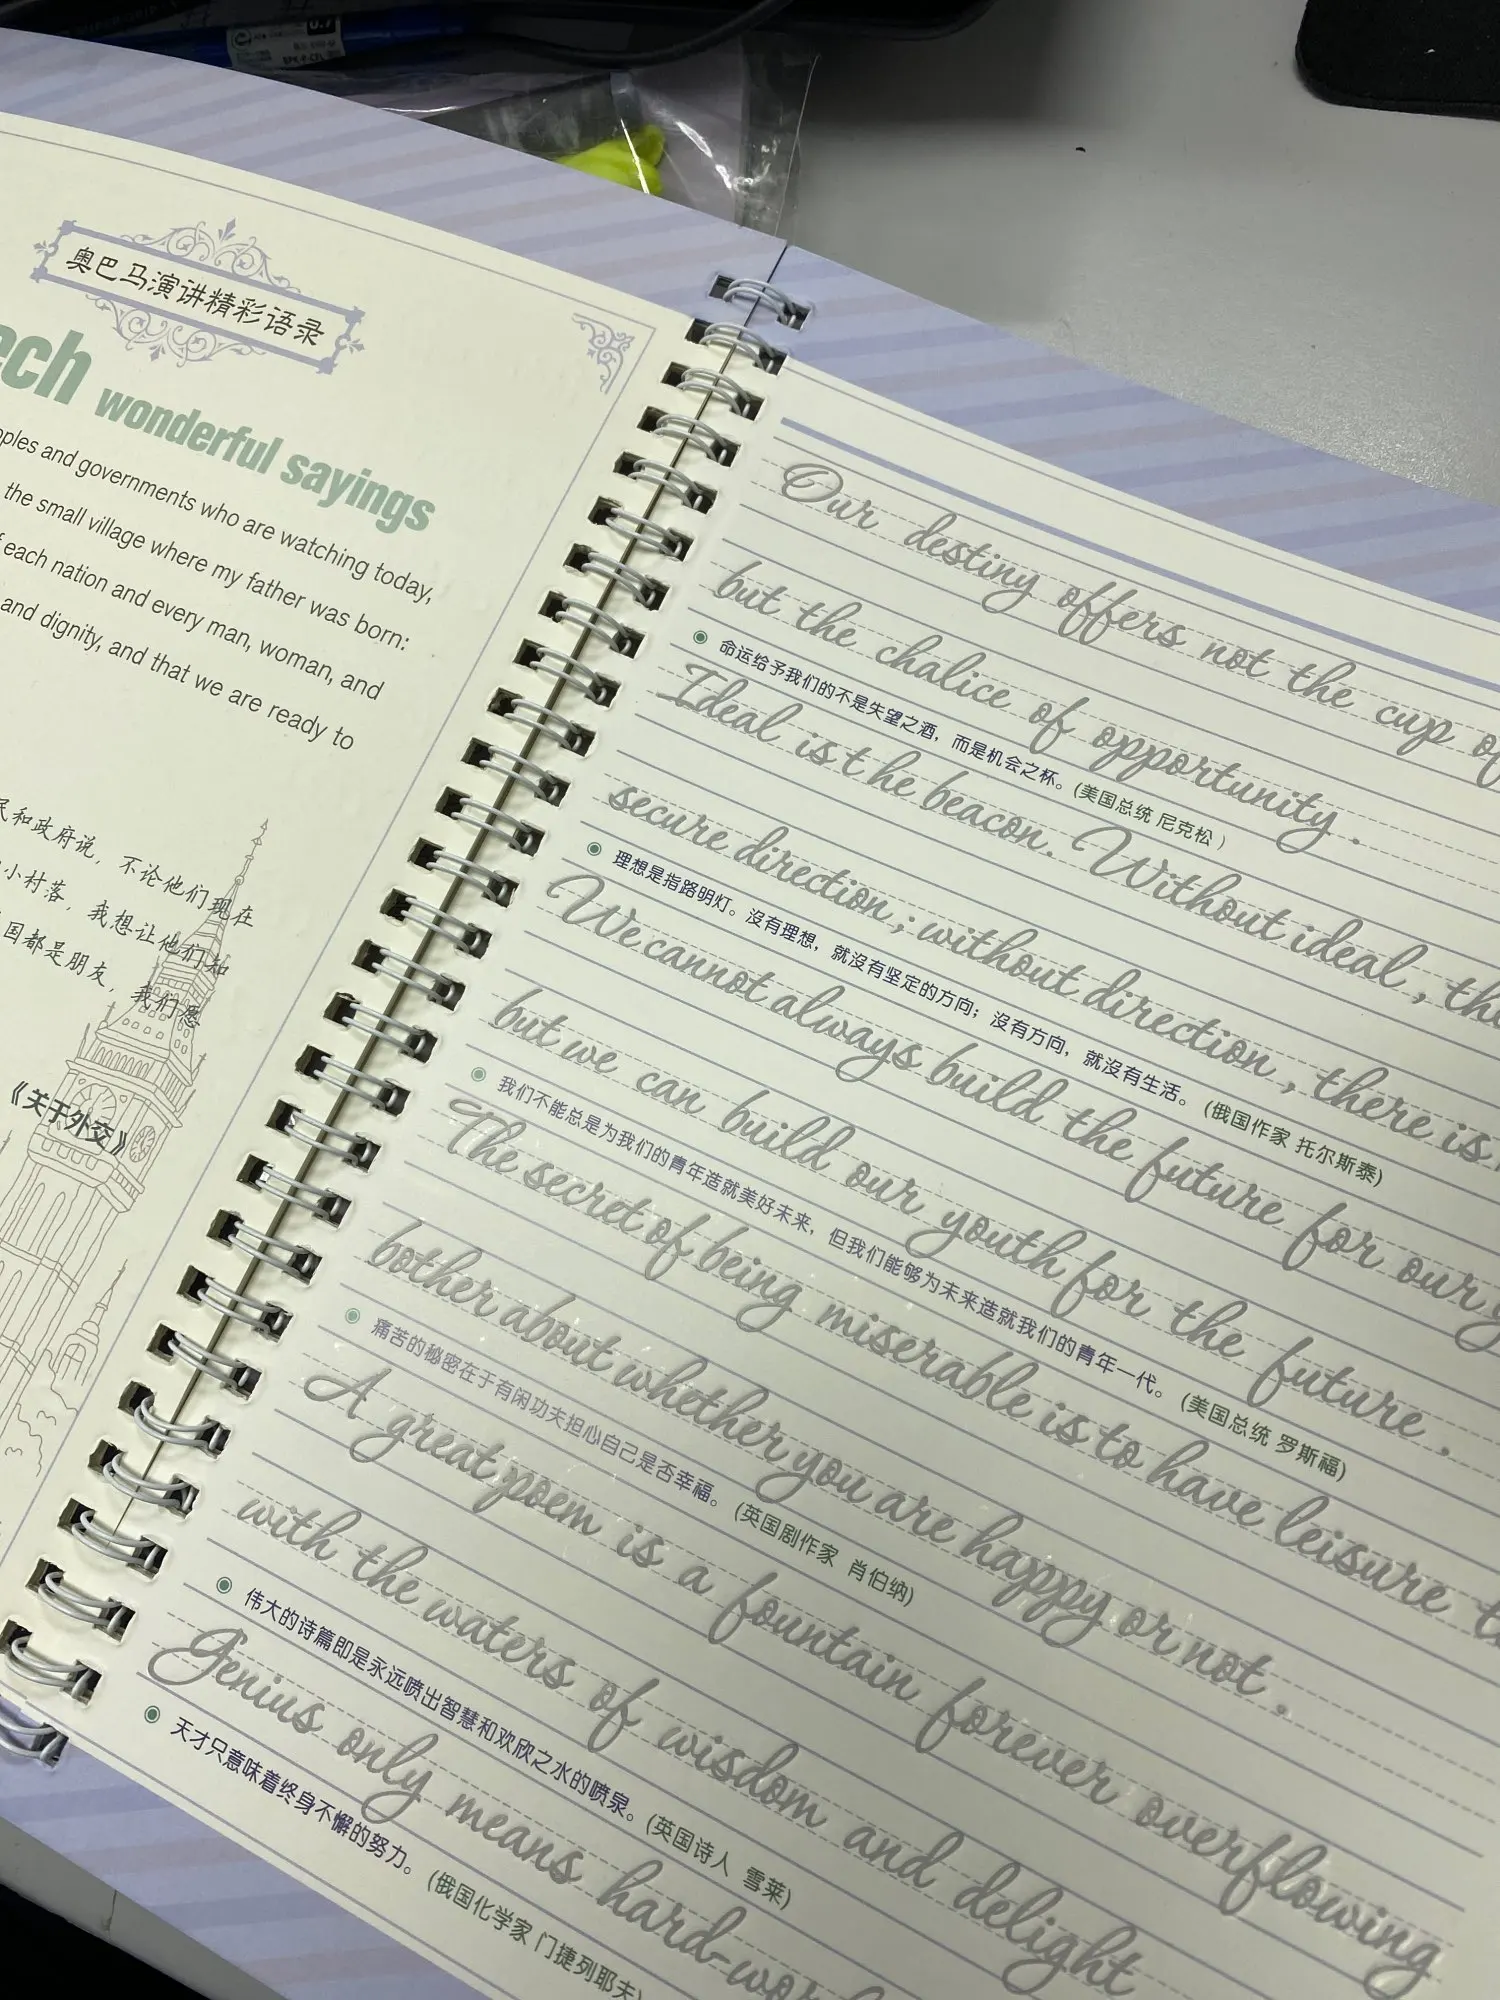 奥巴马演讲精彩语录
wonderful sayings
and governments who are watching today,
the small village where my father was born:
each nation and every man, woman, and
and dignity, and that we are ready to
和政府说，不论他们现在
小村落，我想让他们知
国都是朋友，我们愿
《关于外交》
Our destiny offers not the cup of
but the chalice of opportunity.
命运给予我们的不是失望之酒，而是机会之杯。(美国总统 尼克松)
Ideal is the beacon. Without ideal,
secure direction; without direction, there is
理想是指路明灯。沒有理想，就沒有坚定的方向；沒有方向，就沒有生活。(俄国作家 托尔斯泰)
We cannot always build the future for our
but we can build our youth for the future.
我们不能总是为我们的青年造就美好未来，但我们能够为未来造就我们的青年一代。(美国总统 罗斯福)
The secret of being miserable is to have leisure
bother about whether you are happy or not.
痛苦的秘密在于有闲功夫担心自己是否幸福。(英国剧作家 肖伯纳)
A great poem is a fountain forever overflowing
with the waters of wisdom and delight
伟大的诗篇即是永远喷出智慧和欢欣之水的喷泉。(英国诗人 雪莱)
Genius only means hard-
天才只意味着终身不懈的努力。(俄国化学家 门捷列耶夫)